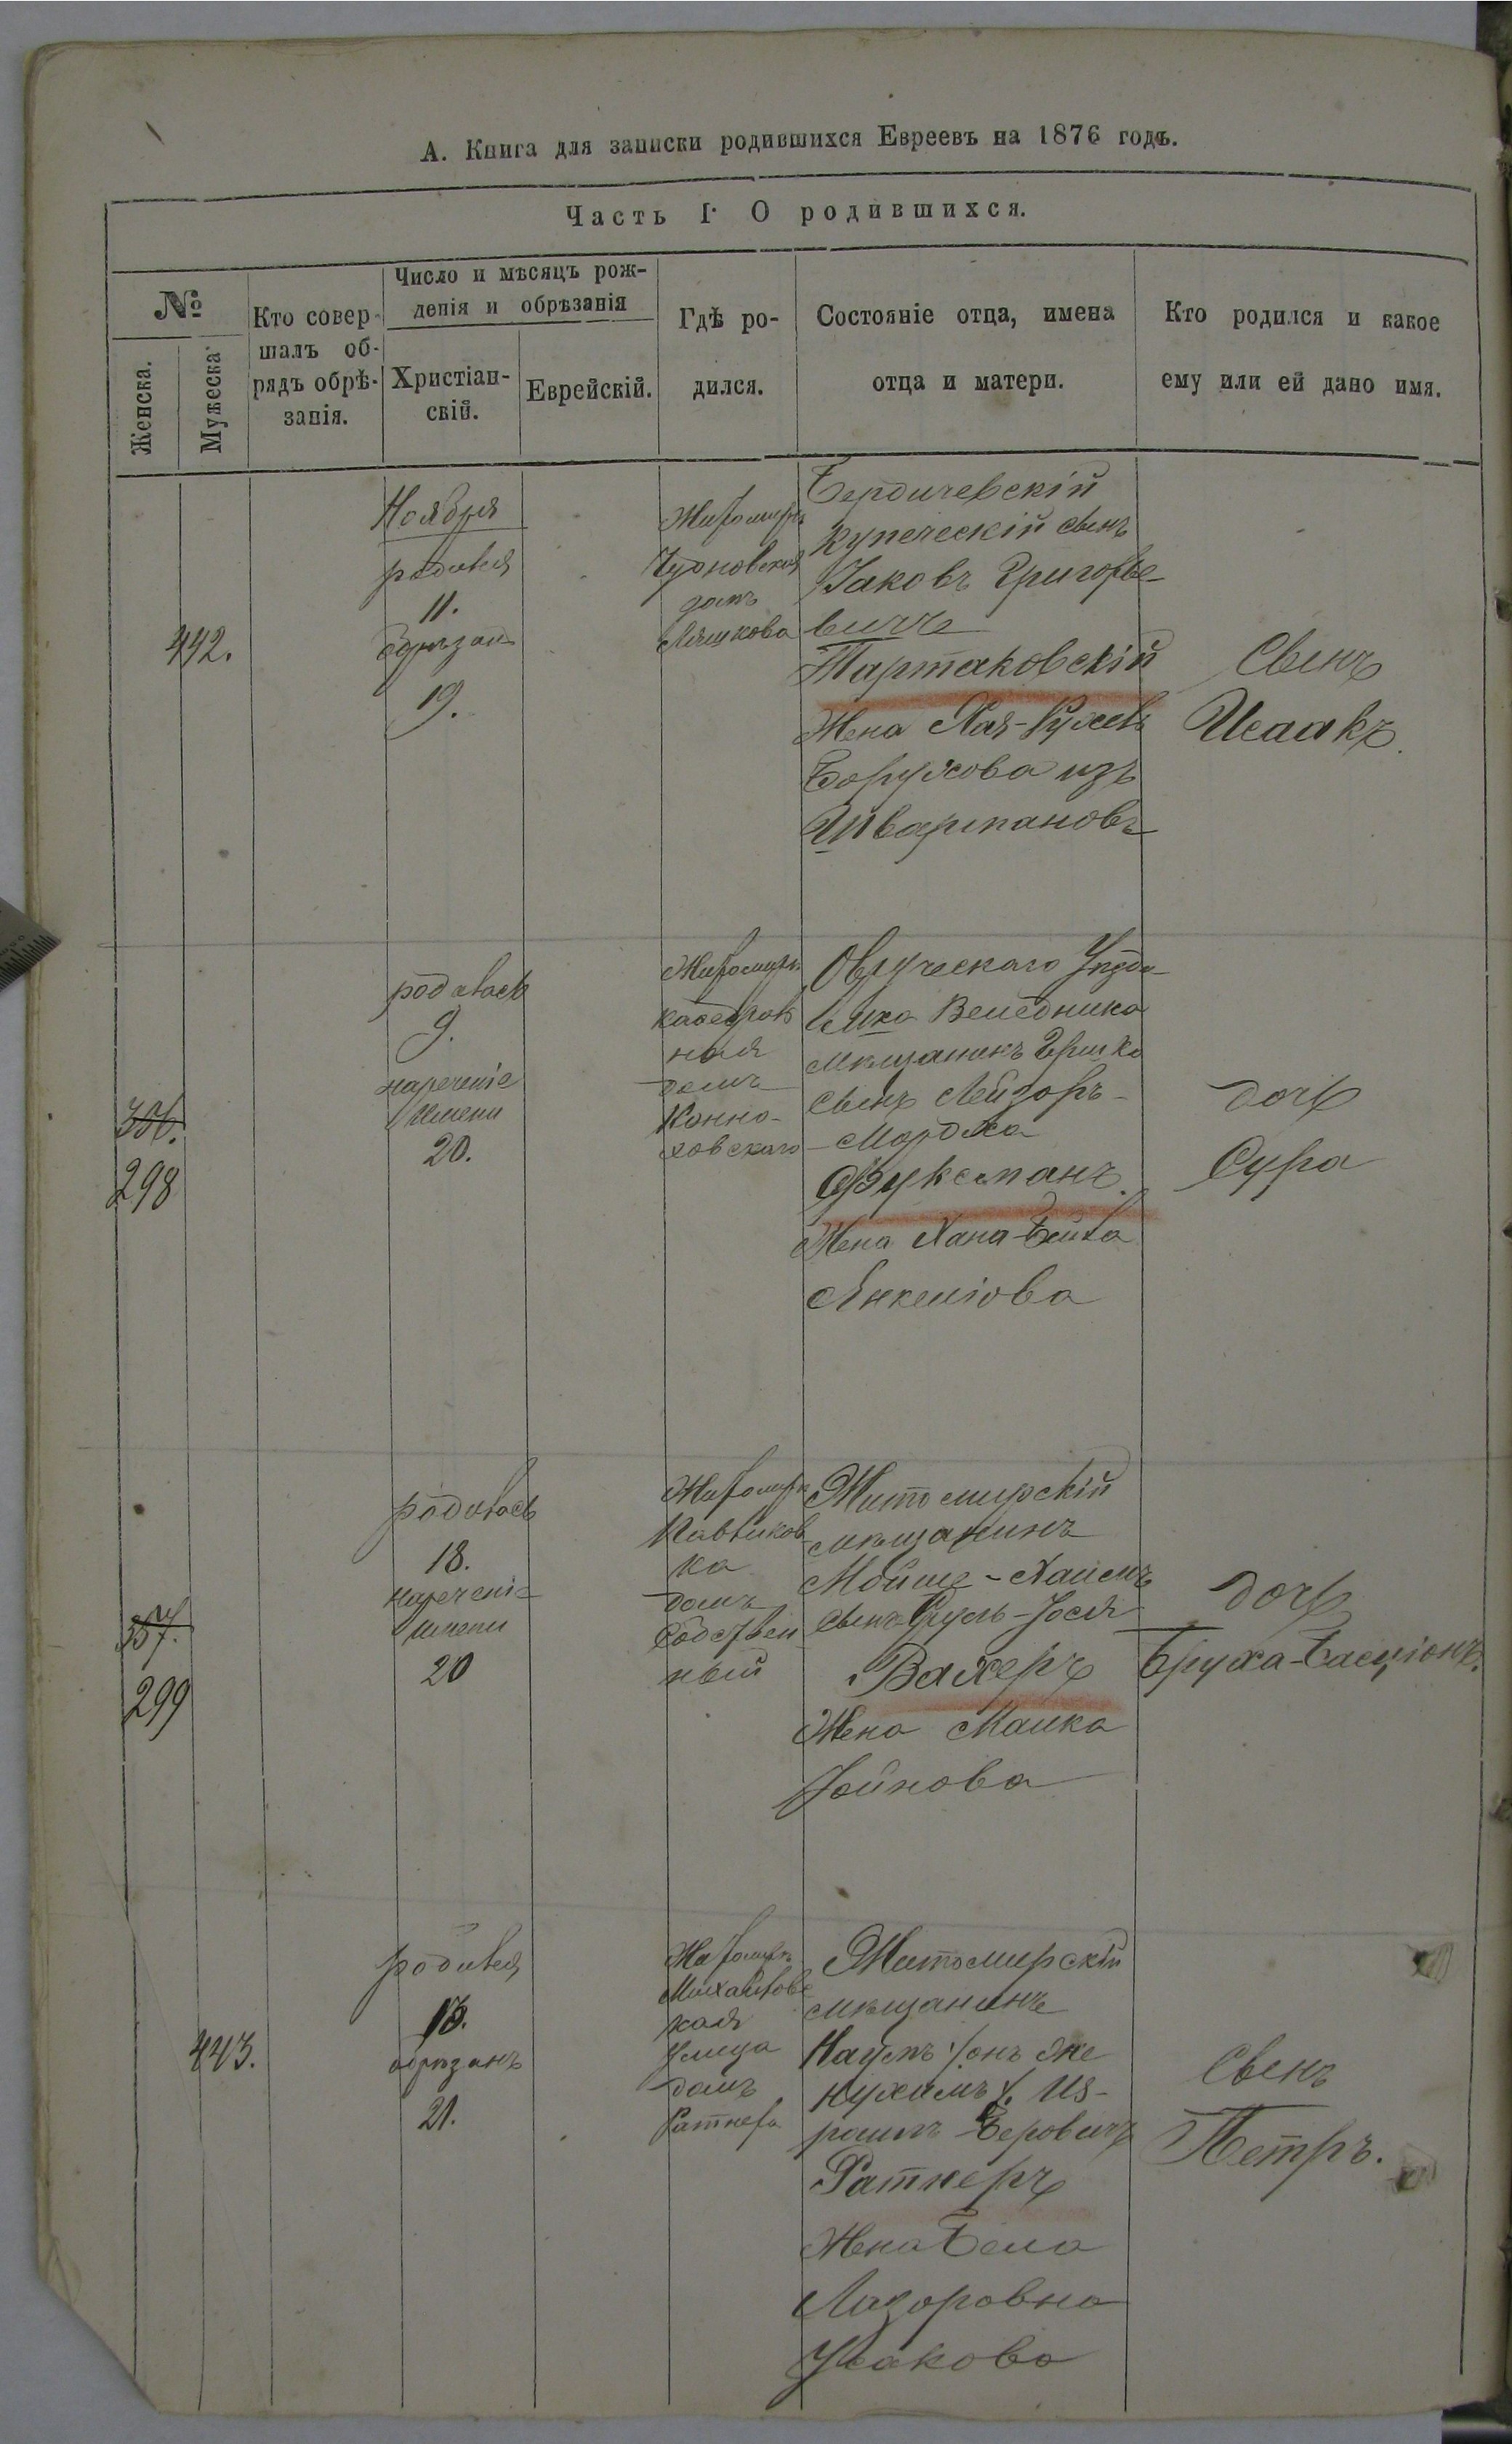 А. Книга для записки родившихся Евреевъ на 1876 годъ.
Часть I. О родившихся.
№
Женска.
Мужеска.
Кто совер-
шалъ об-
рядъ обрѣ-
занія.
Число и мѣсяцъ рож-
денія и обрѣзанія
Христіан-
скій.
Еврейскій.
Гдѣ ро-
дился.
Состояніе отца, имена
отца и матери.
Кто родился и какое
ему или ей дано имя.
442.
Ноября
родился
11.
обрѣзан
19.
Житомиръ
Чудновская
домъ
Ляшкова
Бердичевскій
купеческій сынъ
Іаковъ Григорье-
вичъ
Тартаковскій
Жена Хая-Рухель
Борухова изъ
Шварцмановъ
Сынъ
Исаакъ.
356.
298
родилась
9.
нареченіе
имени
20.
Житомиръ
кафедраль
ная
домъ
ховскаго
Овручскаго Уѣзда
мѣщанинъ Гершко
сынъ Лейзоръ-
Мордха
Фуксманъ.
Жена Хана-Бейла
Янкелiова
дочь
Сура
357.
299
родилась
18.
нареченіе
имени
20
Житомиръ
Павликов
ка
домъ
собствен
ный
Житомирскій
мѣщанинъ
Мойше-Хаимъ
сынъ Сруль-Іося
Вахеръ
Жена Малка
Іойнова
дочь
Бруха-Басціонъ.
443.
родился
13.
обрѣзанъ
21.
Житомиръ
Михайловс
кая
улица
домъ
Ратнера
Житомирскій
мѣщанинъ
Наумъ /онъ же
нухимъ/. Из-
раиль Беровичъ
Ратнеръ
Жена Бела
Лазоровна
Ушакова
Сынъ
Петръ.